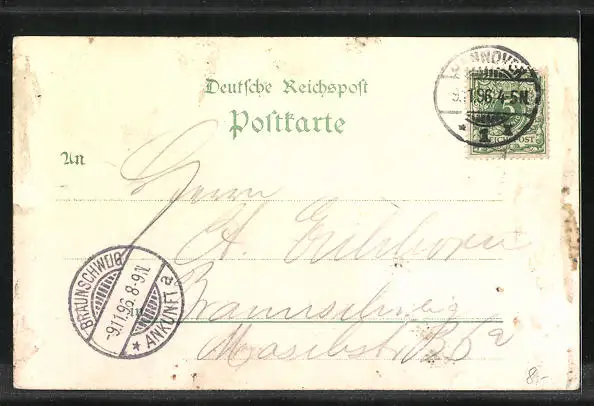 Deutsche Reichspost
Postkarte
HANNOVER
9.11.96.4-5N.
* 1 I
5
REICHSPOST
An
Herrn
A. Eichhorn
BRAUNSCHWEIG
-9.11.96.8-9.N.
* ANKUNFT a
Braunschweig
8,-